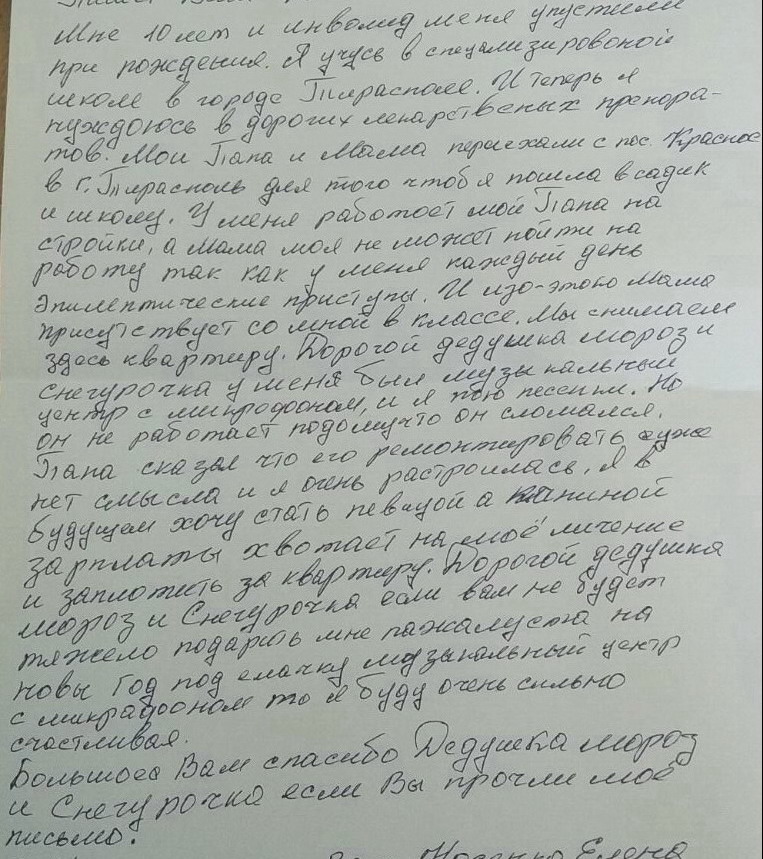 Мне 10 лет и инволид меня упустили
при рождения. Я учусь в специализировоной
школе в городе Тирасполе. И теперь я
нуждоюсь в дорогих лекарственых препора-
тов. Мои Папа и Мама переехали с пос. Красное
в г. Тирасполь для того чтоб я пошла в садик
и школу. У меня работоет мой Папа на
стройки, а мама моя не может пойти на
роботу так как у меня каждый день
эпилептические приступы. И изо-этого мама
присутствует со мной в классе. Мы снимаем
здесь квартиру. Дорогой дедушка мороз и
снегурочка у меня был музыкальный
центр с микрофоном, и я пою песенки. Но
он не работает подомучто он сломался.
Папа сказал что его ремонтировать уже
нет смысла и я очень растроилась. Я в
будущем хочу стать певицой а папиной
зарплаты хвотает на моё личение
и заплотить за квартиру. Дорогой дедушка
мороз и Снегурочка если вам не будет
тяжело подарить мне пажалуста на
новы Год под ёлачку музыкальный центр
с микрафоном то я буду очень сильно
счастливая.
Большоеа Вам спасибо Дедушка мороз
и Снегурочка если Вы прочли моё
письмо.
Елена